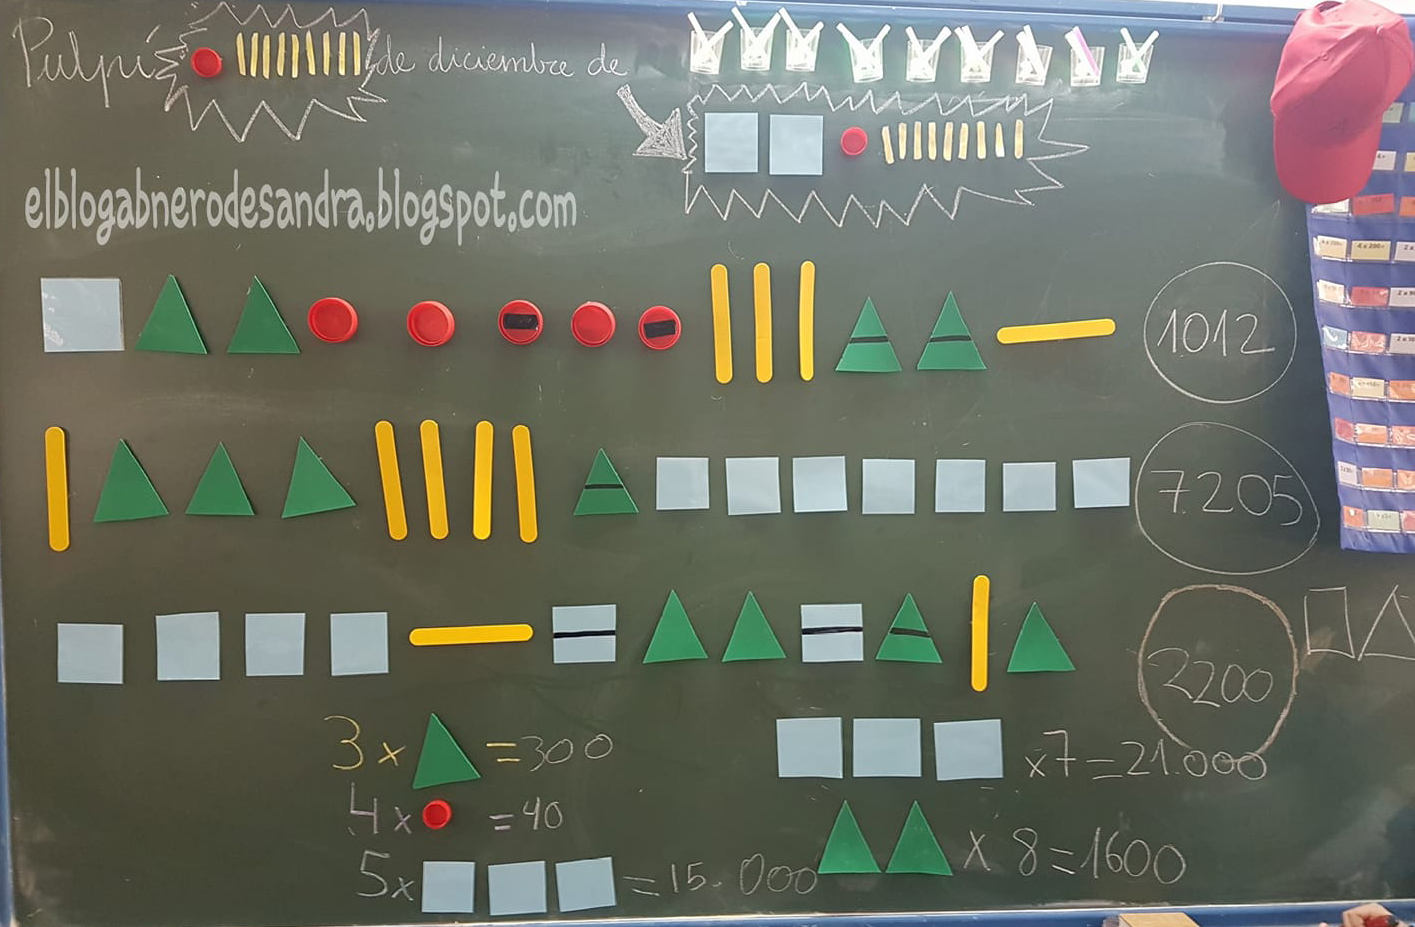 Pulpí de diciembre de
elblogabnerodesandra.blogspot.com
1012
7.205
2200
3x =300
x7=21.000
4x =40
x 8=1600
5x =15.000